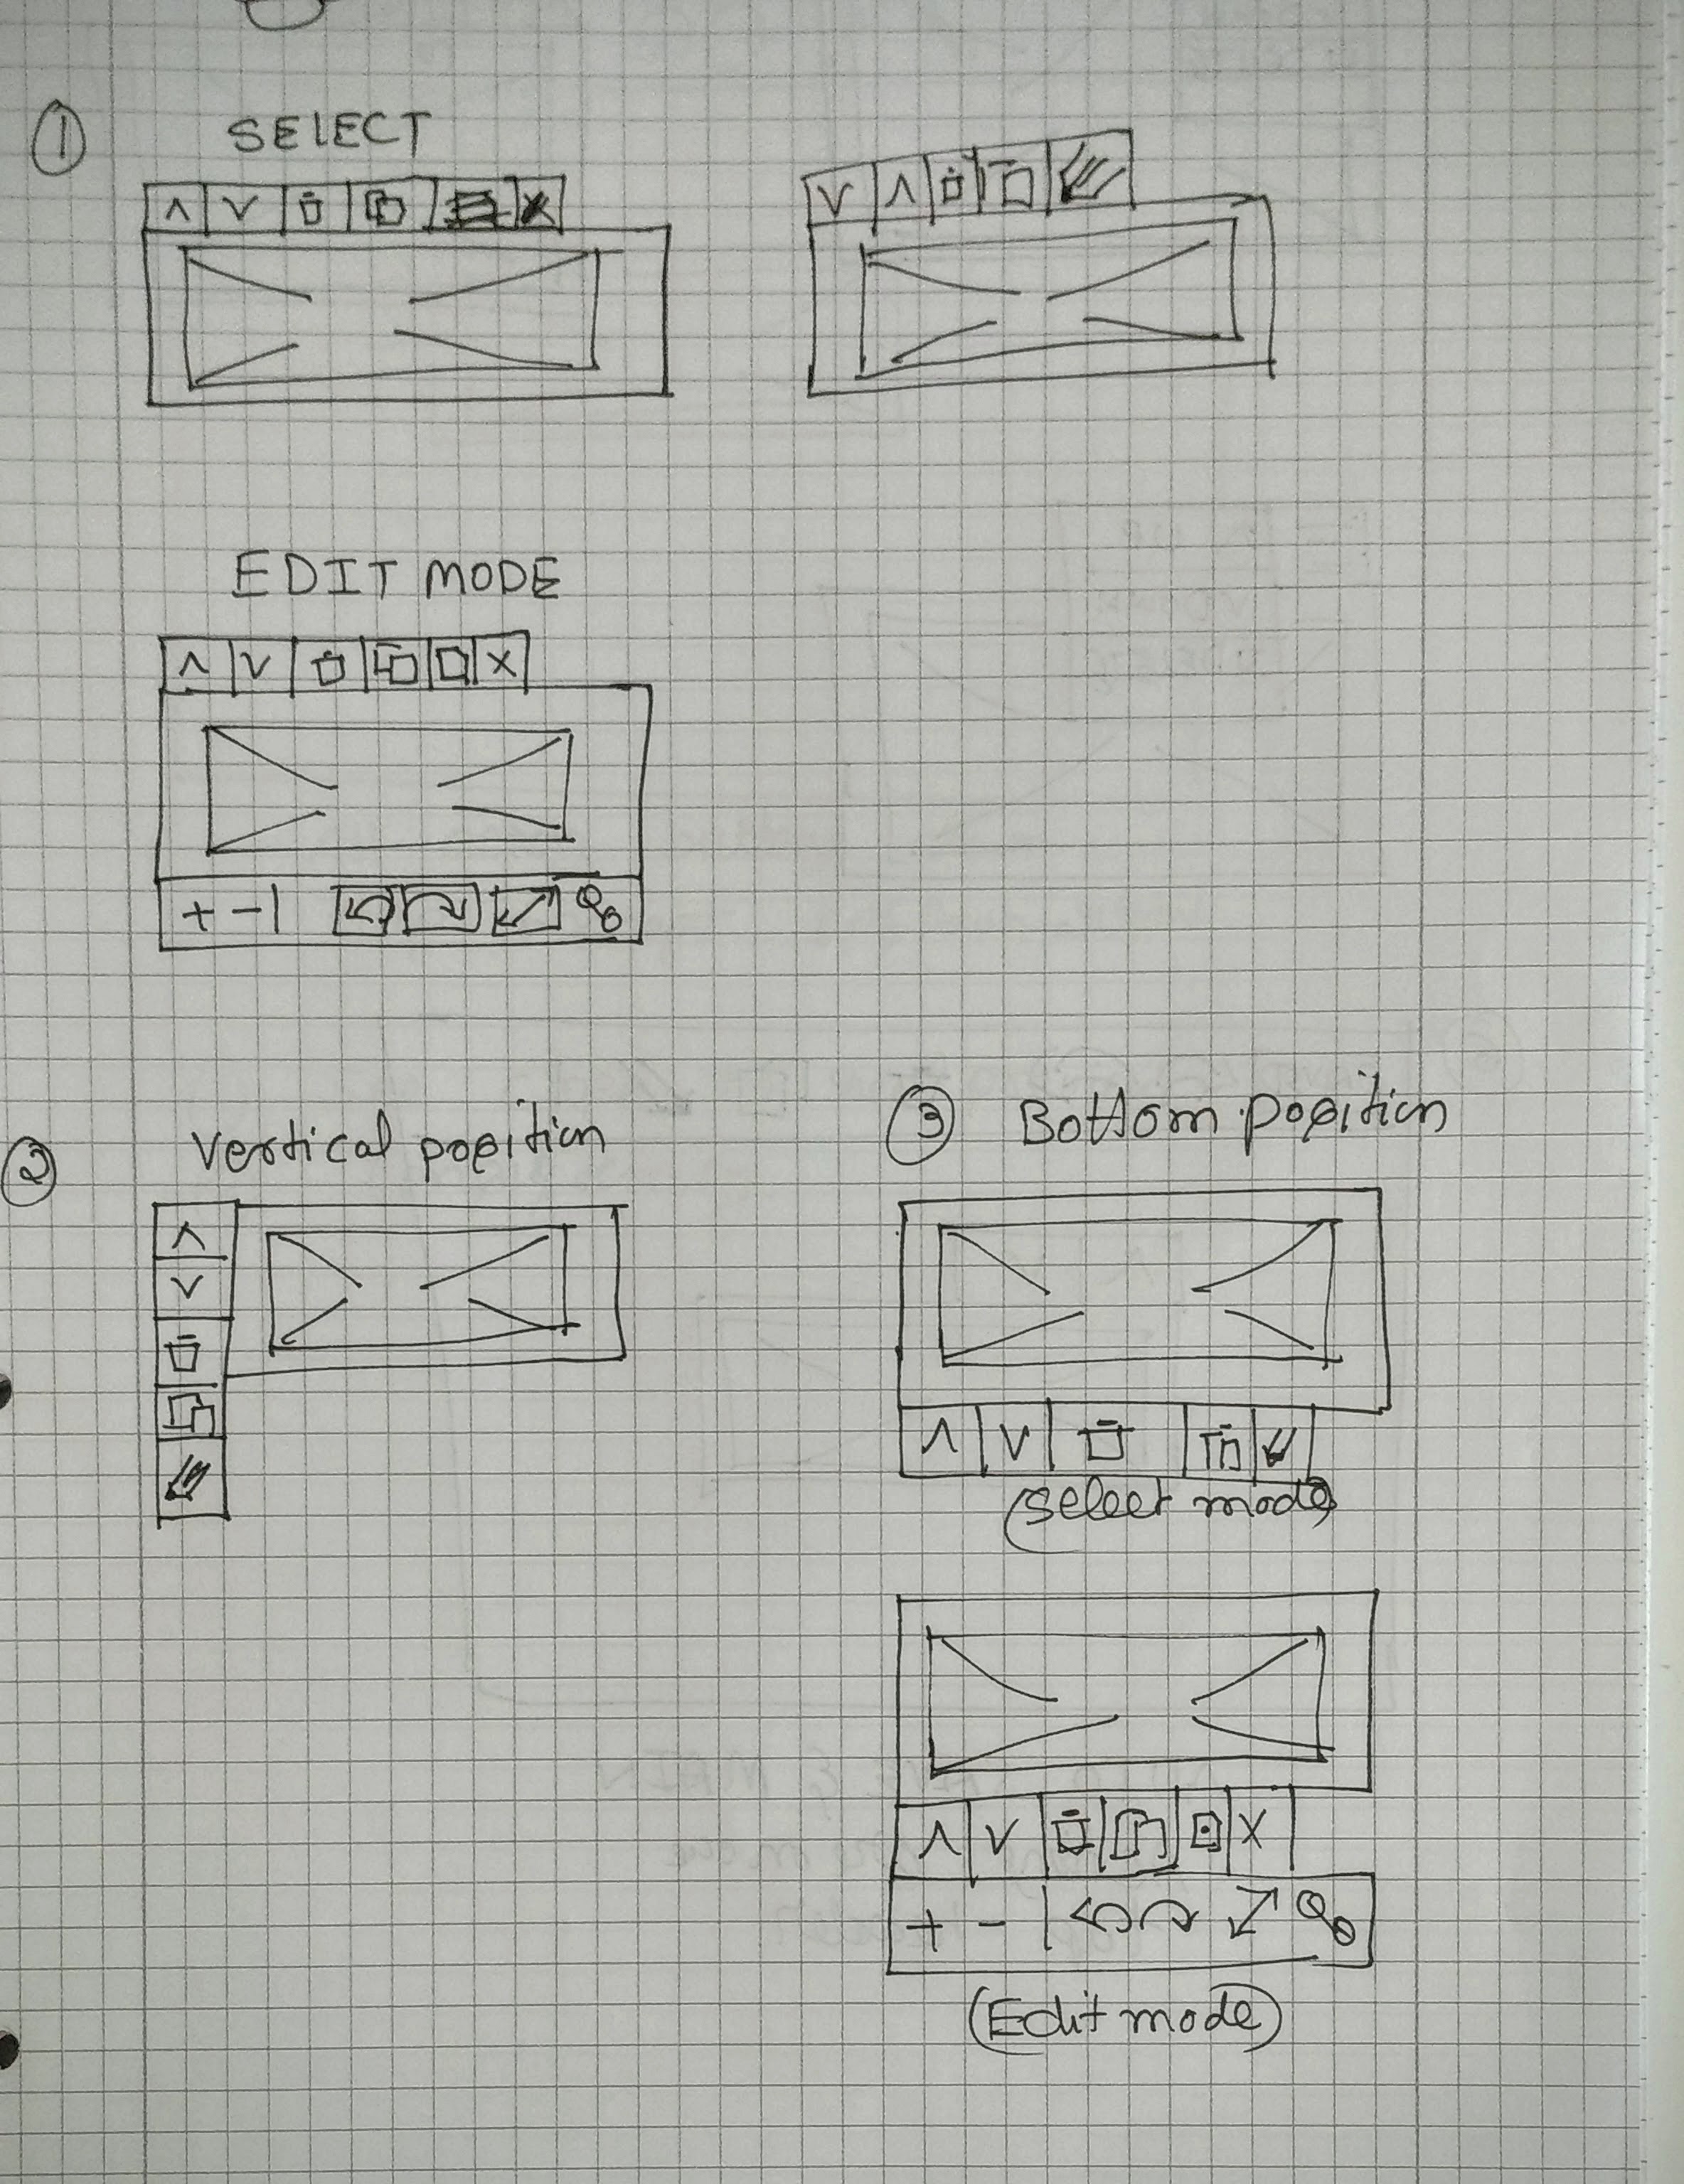 1 SELECT
EDIT MODE
2 Vertical position
3 Bottom position
(select mode)
(Edit mode)